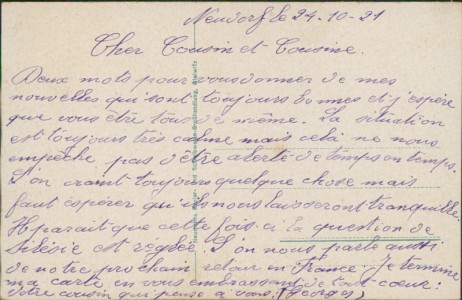 Neudorf le 24-10-21
Cher Cousin et Cousine.
Deux mots pour vous donner de mes
nouvelles qui sont toujours bonnes et j'espère
que vous etre tous de même. La situation
est toujours très calme mais celà ne nous
empêche pas d'être alerté de temps en temps.
L'on craint toujours quelque chose mais
faut espérer qu'ils nous laisseront tranquille.
Il parait que cette fois-ci la question de
Silésie est reglée. L'on nous parle aussi
de notre prochain retour en France. Je termine
ma carte en vous embrassant de tout cœur.
Votre cousin qui pense à vous. (Georges)